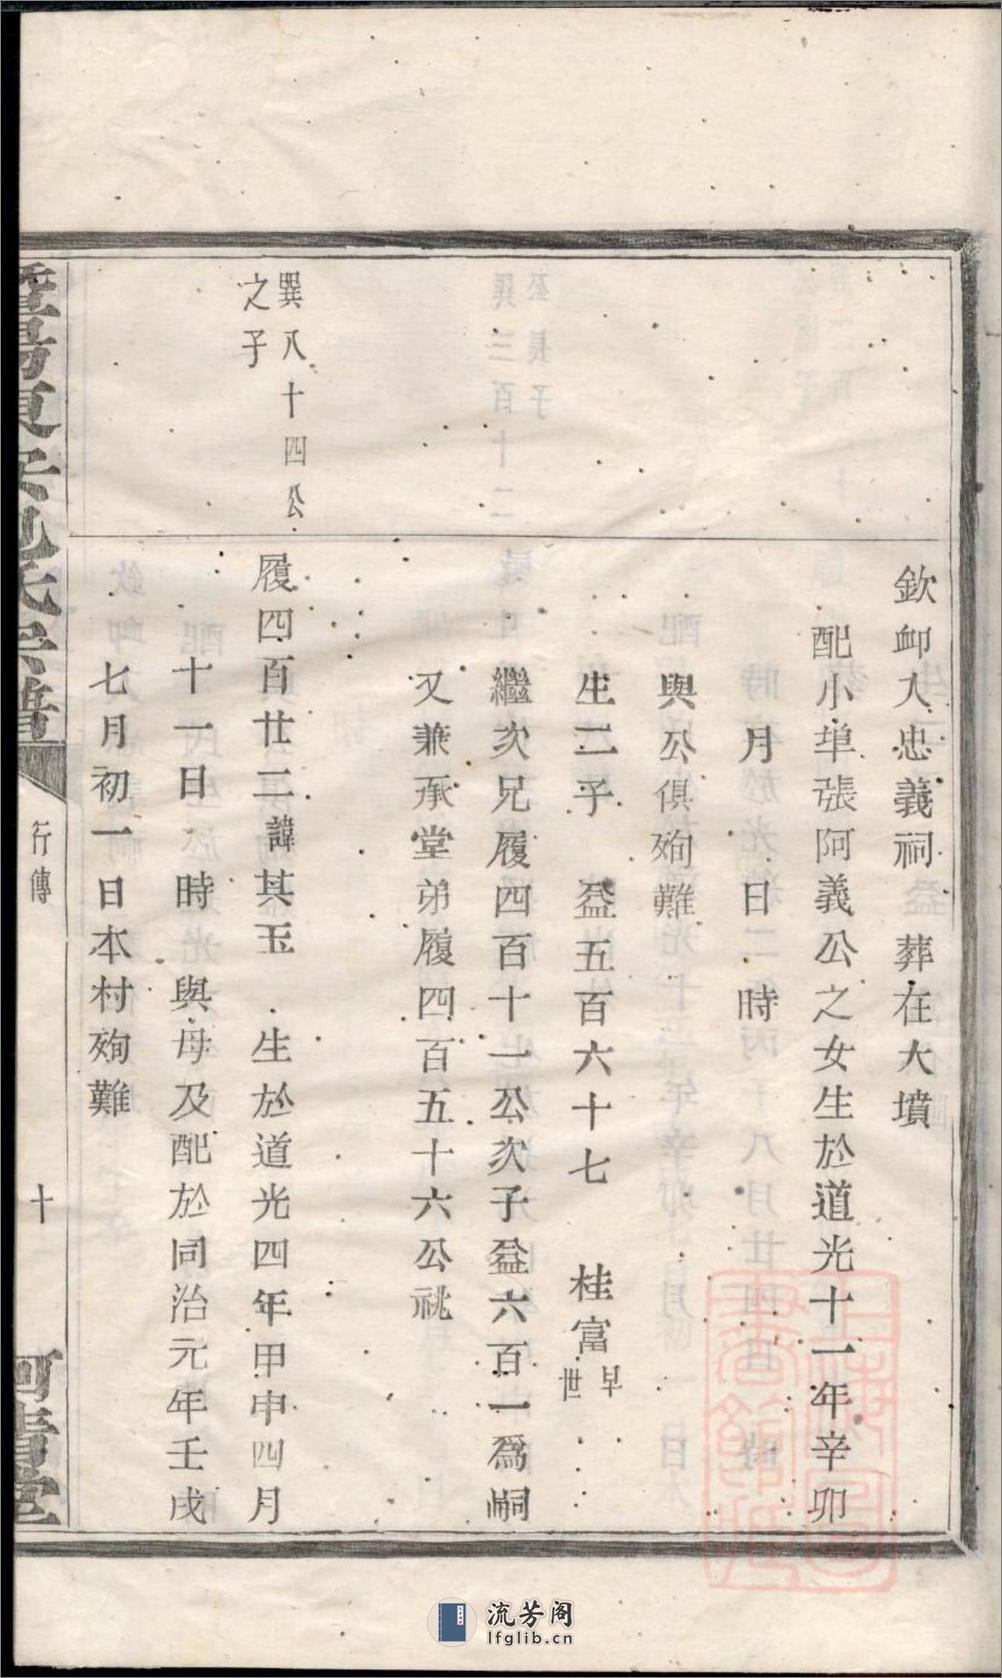 欽卹入忠義祠 葬在大墳
配小埠張阿義公之女生於道光十一年辛卯
月 日 時
與公俱殉難
生二子 益五百六十七 桂富早世
繼次兄履四百十一公次子益六百一爲嗣
又兼承堂弟履四百五十六公祧
巽八十四公
之子
履四百廿二諱其玉 生於道光四年甲申四月
十一日 時 與母及配於同治元年壬戌
七月初一日本村殉難
行傳
十
流芳阁
lfglib.cn